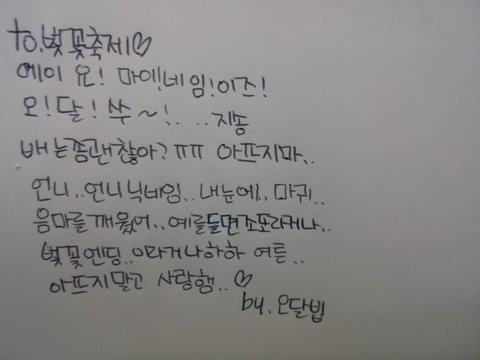 to.벚꽃축제♡
에이 요! 마이!네임!이즈!
오!달!쑤~!. ..지송
배는좀괜찮아?ㅠㅠ 아프지마..
언니..언니닉네임..내눈에.. 마귀..
음마를깨웠어..예를들면조포라거나..
벚꽃엔딩..이라거나하하 여튼..
아프지말고 사랑햄..♡
by.오달빕